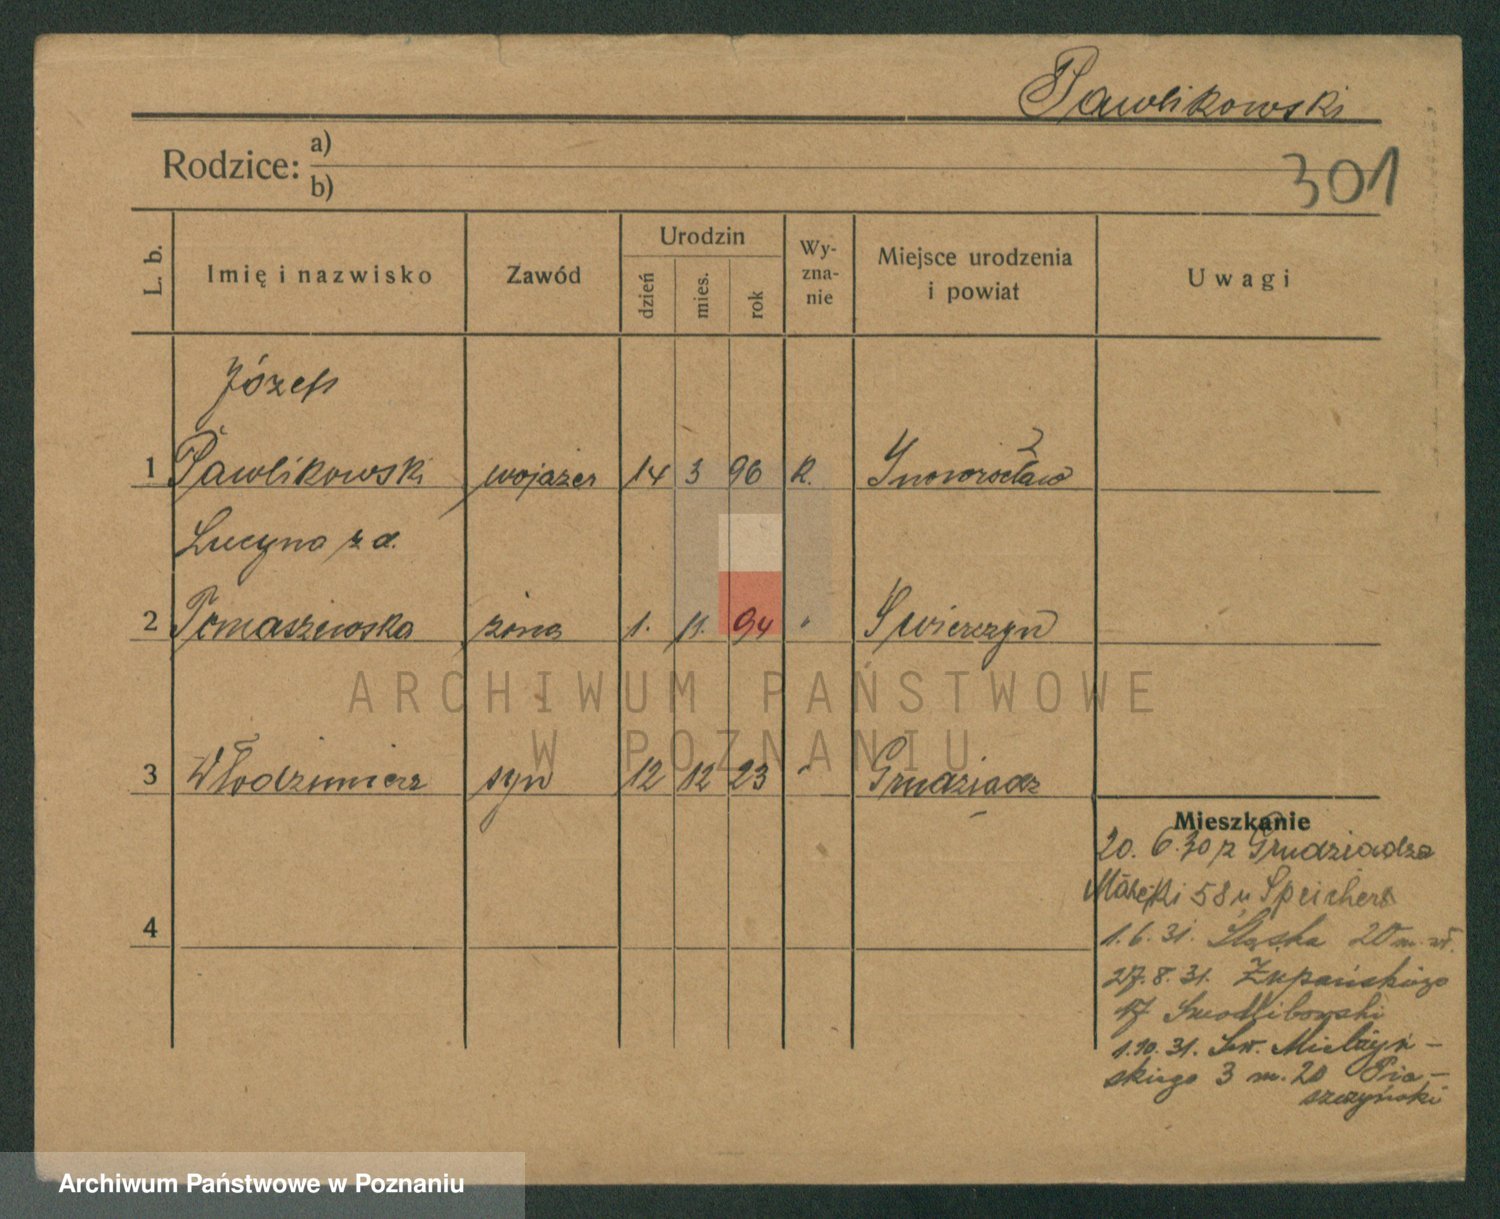 Pawlikowski
Rodzice: a)
b)
301
L. b.
Imię i nazwisko
Zawód
Urodzin
dzień
mies.
rok
Wy-
zna-
nie
Miejsce urodzenia
i powiat
Uwagi
Józef
1 Pawlikowski wojażer 14 3 96 K. Inowrocław
Lucyna z d.
2 Tomaszewska żona 1. 11. 94 " Swierczyn
3 Włodzimierz syn 12 12 23 " Grudziądz
4
Mieszkanie
20. 6. 30 z Grudziądza
58 u Speichert
1. 6. 31. Śląska 20 m. wł.
27. 8. 31. Żupańskiego
17 Smodlibowski
1. 10. 31. Sew. Mielżyń-
skiego 3 m. 20 Pia-
szczyński
ARCHIWUM PAŃSTWOWE
W POZNANIU
Archiwum Państwowe w Poznaniu